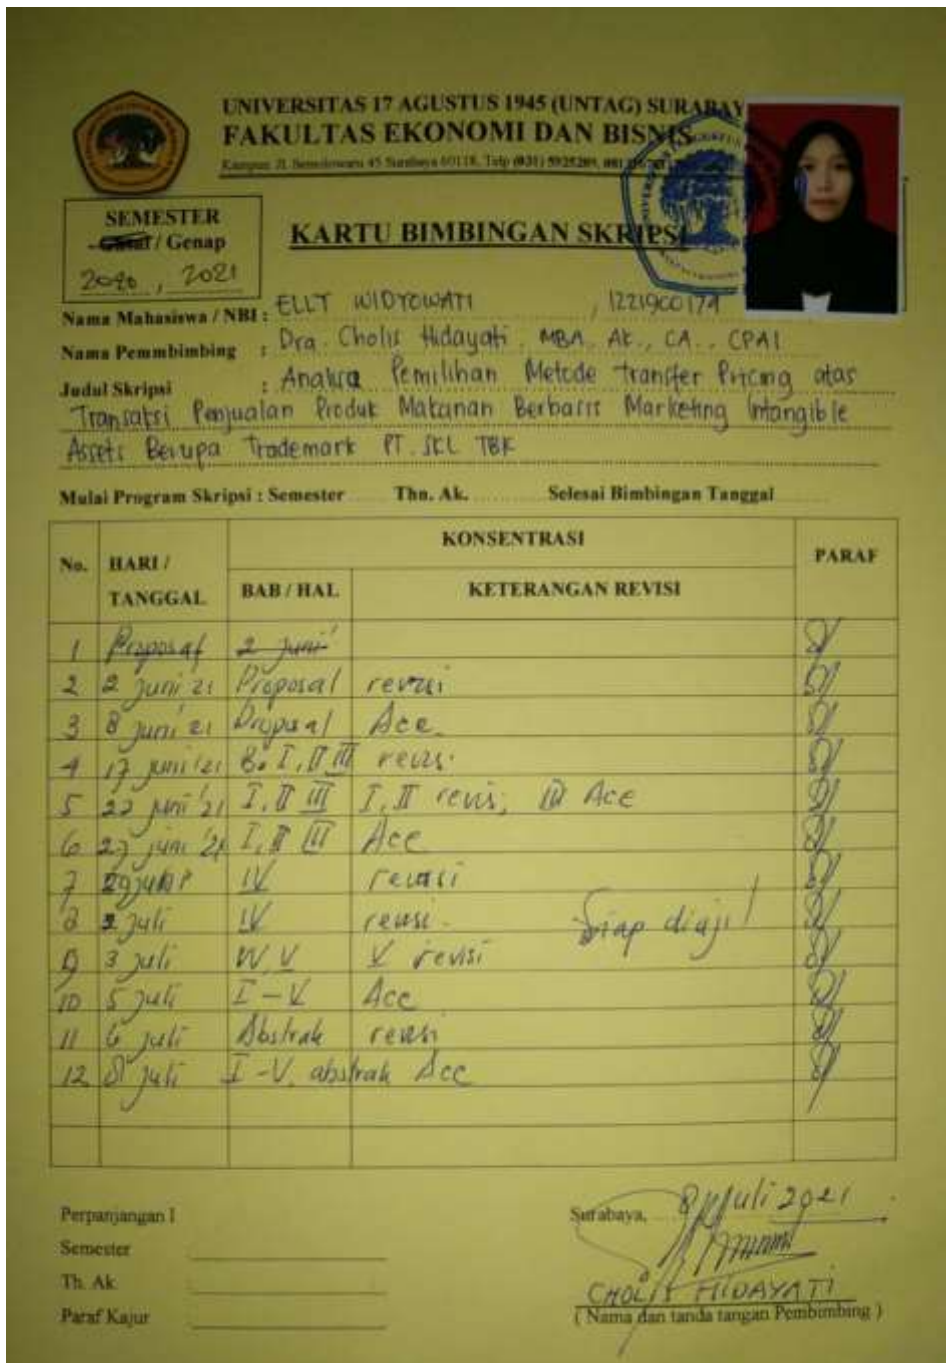 UNIVERSITAS 17 AGUSTUS 1945 (UNTAG) SURABAY
FAKULTAS EKONOMI DAN BISNIS
Kampus Jl. Semolowaru 45 Surabaya 60118, Telp (031) 5925289,
SEMESTER
Gasal / Genap
2020, 2021
KARTU BIMBINGAN SKRIPSI
Nama Mahasiswa / NBI : ELLT WIDYOWATI , 1221900174
Nama Pemmbimbing : Dra. Cholis Hidayati, MBA, Ak., CA., CPAI
Judul Skripsi : Analisa Pemilihan Metode transfer Pricing atas
Transaksi Penjualan Produk Makanan Berbasis Marketing Intangible
Assets Berupa Trademark PT. SKL TBK
Mulai Program Skripsi : Semester Thn. Ak. Selesai Bimbingan Tanggal
No. HARI / TANGGAL KONSENTRASI PARAF
BAB / HAL KETERANGAN REVISI
1 Proposal 2 juni
2 2 juni 21 Proposal revisi
3 8 juni 21 Proposal Acc
4 17 juni '21 B. I, II III revisi
5 22 juni '21 I, II III I, II revisi, III Acc
6 27 juni '21 I, II III Acc
7 29 juni IV revisi
8 2 juli IV revisi - Siap diuji!
9 3 juli IV, V V revisi
10 5 juli I - V Acc
11 6 juli Abstrak revisi
12 8 juli I - V, abstrak Acc
Perpanjangan I
Semester
Th. Ak
Paraf Kajur
Surabaya, 8 Juli 2021
CHOLIS HIDAYATI
( Nama dan tanda tangan Pembimbing )